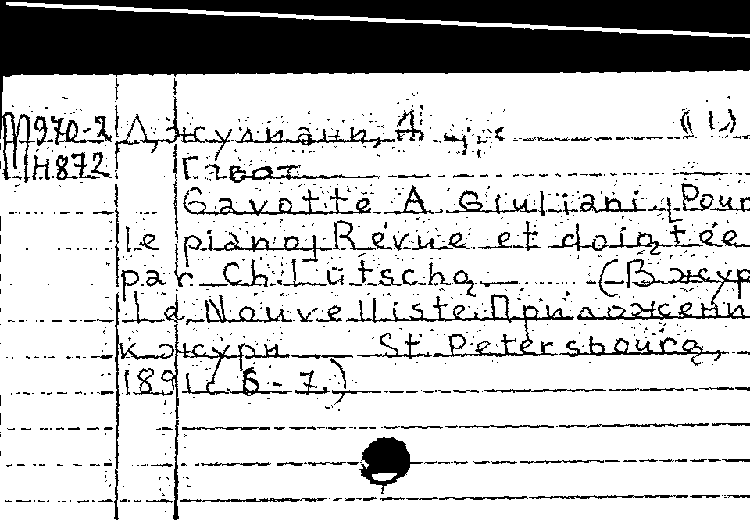 М970-2 Джулиани, Д (1)
Н872 Гавот
Gavotte A Giuliani [Pour
le piano] Révue et doigtée
par Ch. Lütschg (В жур
La Nouvelliste. Приложени
к журн St. Petersbourg,
1891 с 6-7.)